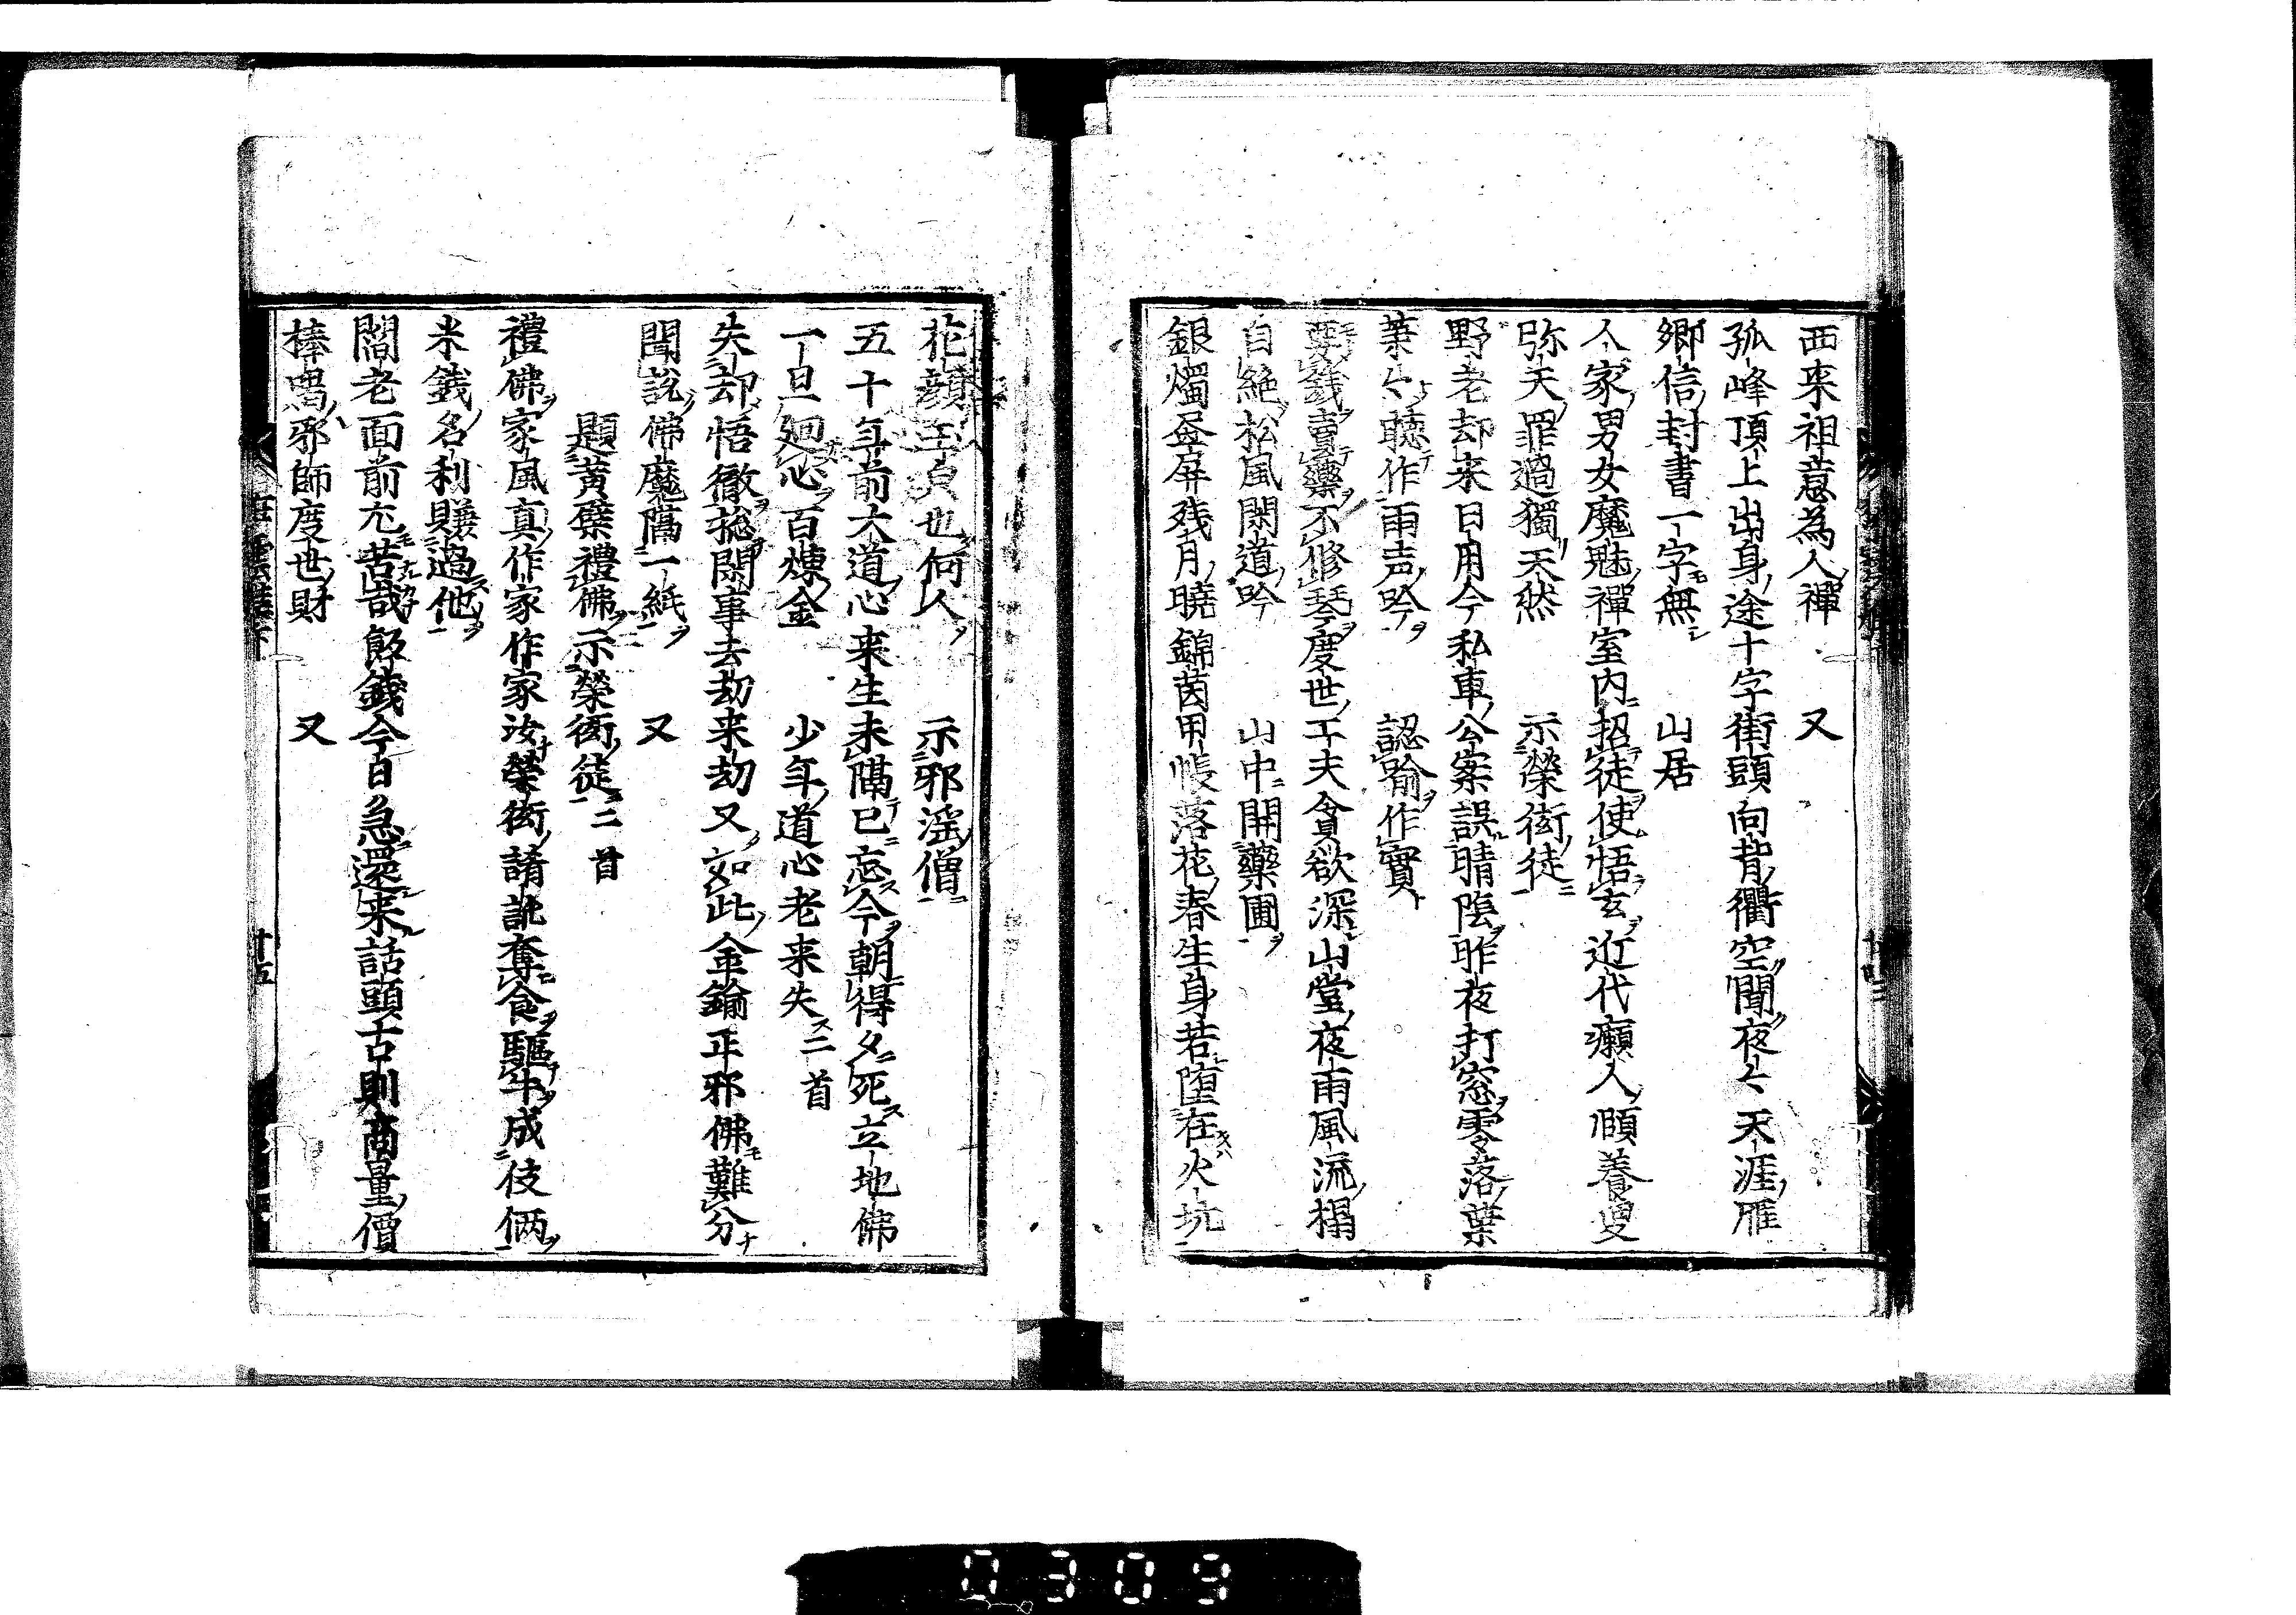 西来祖意為人禪　又
孤峰頂上出身途十字街頭向背衢空聞夜々天涯雁
郷信封書一字無　山居
人家男女魔魅禪室内招徒使悟玄近代癩人頤養叟
弥天罪過獨天然　示榮衒徒
野老却来日用今私車公案誤晴陰昨夜打窓零落葉
葉々聴作雨声吟　認鍮作實
要錢賣藥不修琴度世工夫貪欲深山堂夜雨風流榻
自絶松風閑道吟　山中開藥圃
銀燭金屏残月暁錦茵甲帳落花春生身若堕在火坑
花顔玉皃也何人　示邪淫僧
五十年前大道心来生未隔已忘今朝得夕死立地佛
一旦廻心百煉金　少年道心老来失二首
失却悟徹総閑事去劫来劫又如此金鍮正邪佛難分
聞説佛魔隔一紙　又
題黄檗禮佛示榮衒徒二首
禮佛家風真作家作家汝榮衒請訛奪食驅牛成伎倆
米錢名利賺過他
閻老面前尤苦哉飯錢今日急還来話頭古則商量價
棒喝邪師度世財　又
十五
0309